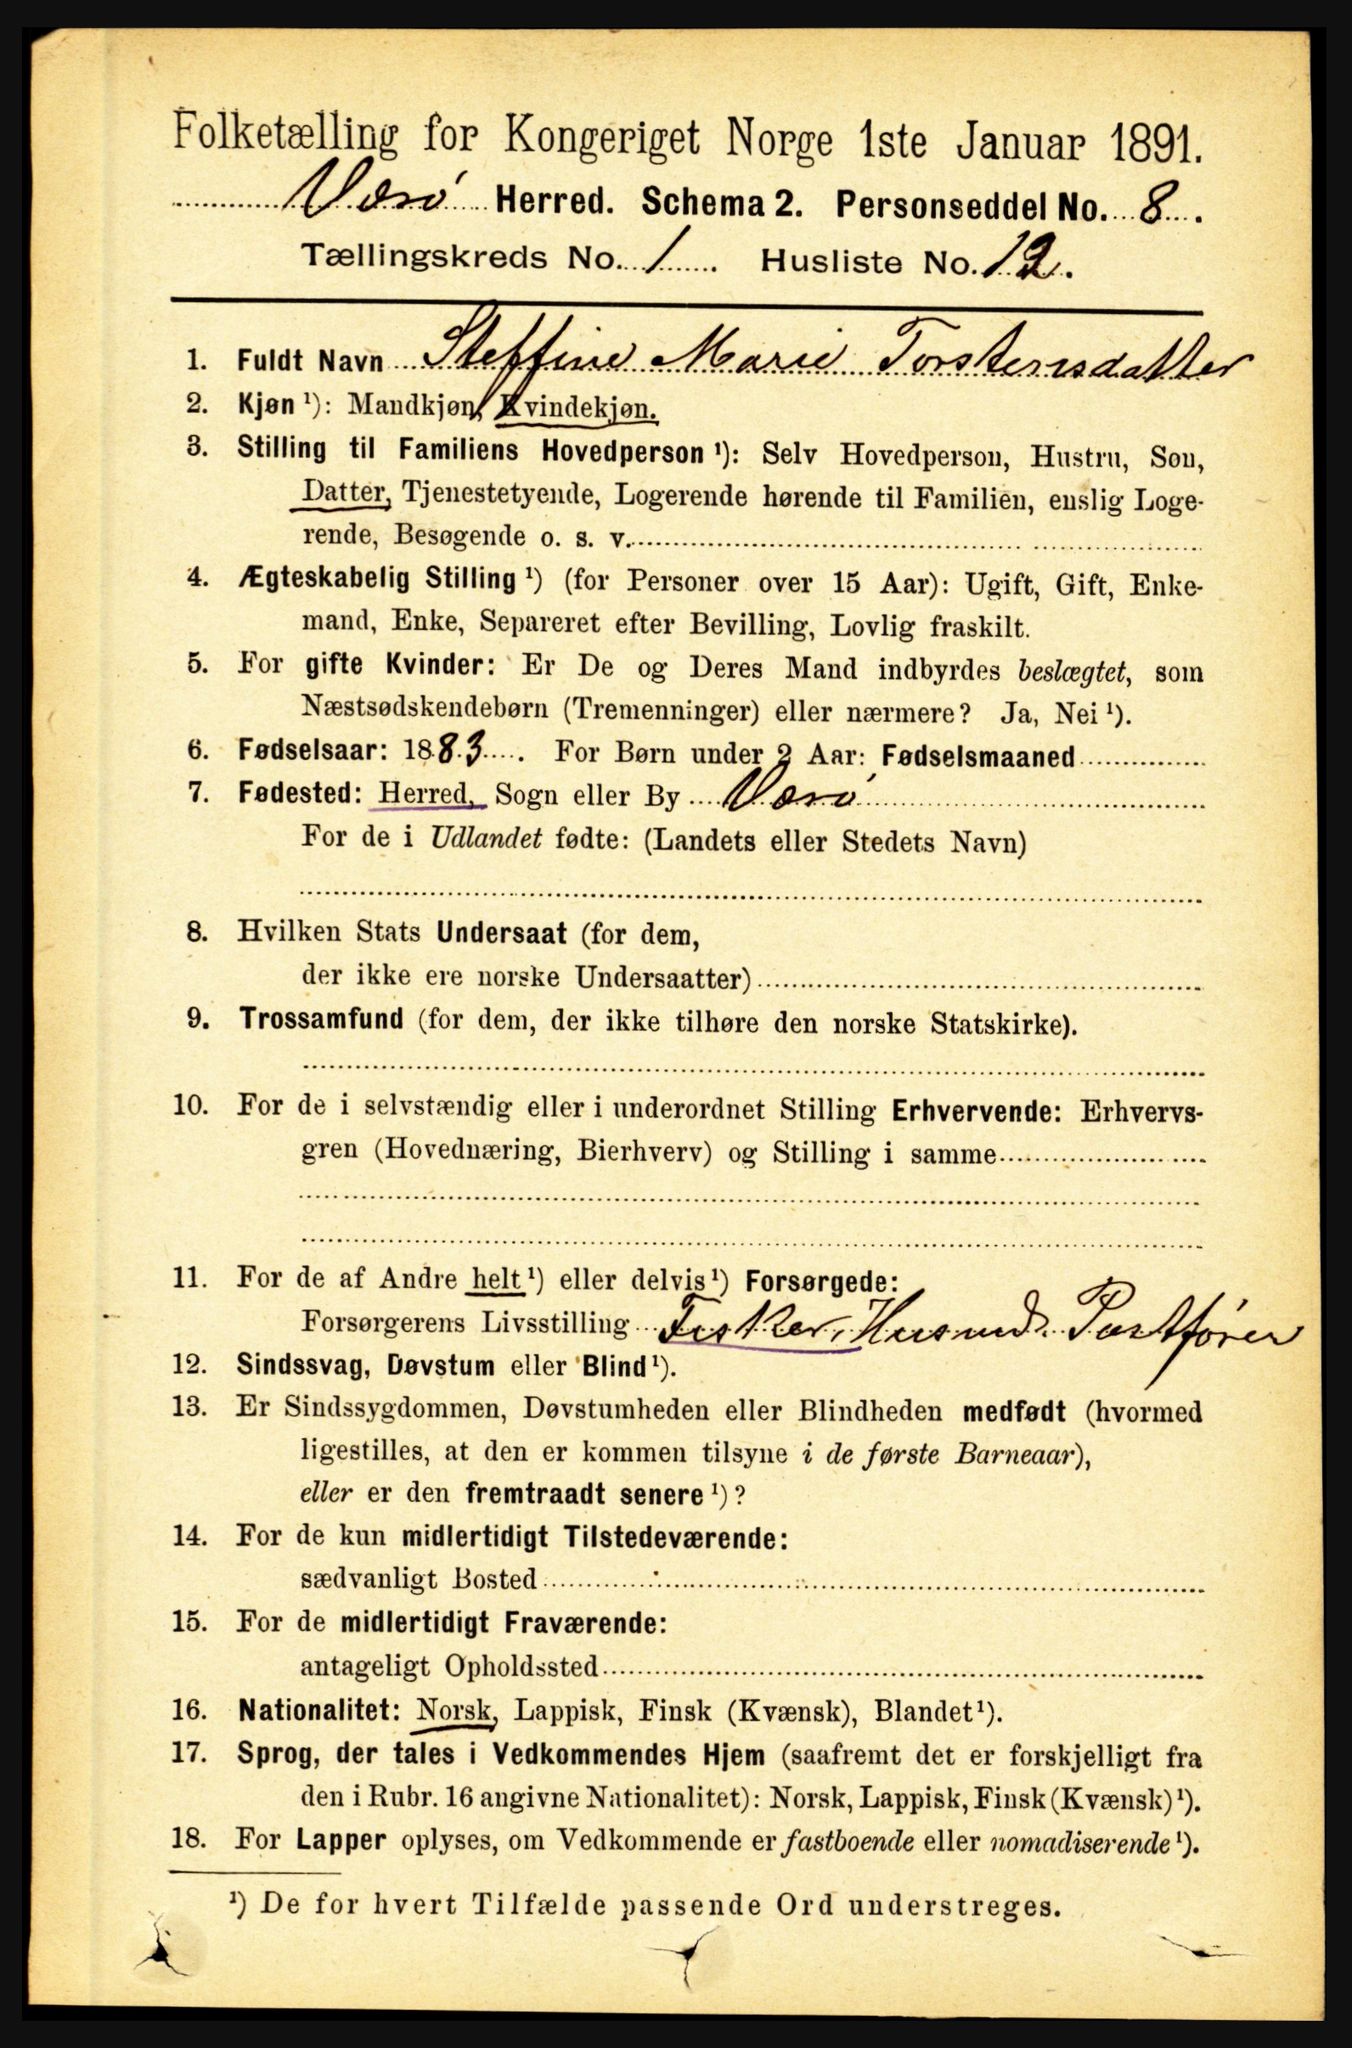 Folketælling for Kongeriget Norge 1ste Januar 1891.
Værø Herred. Schema 2. Personseddel No. 8.
Tællingskreds No. 1. Husliste No. 12.
1. Fuldt Navn Steffine Marie Torstensdatter
2. Kjøn ¹): Mandkjøn, Kvindekjøn.
3. Stilling til Familiens Hovedperson ¹): Selv Hovedperson, Hustru, Søn,
Datter, Tjenestetyende, Logerende hørende til Familien, enslig Loge-
rende, Besøgende o. s. v.
4. Ægteskabelig Stilling ¹) (for Personer over 15 Aar): Ugift, Gift, Enke-
mand, Enke, Separeret efter Bevilling, Lovlig fraskilt.
5. For gifte Kvinder: Er De og Deres Mand indbyrdes beslægtet, som
Næstsødskendebørn (Tremenninger) eller nærmere? Ja, Nei ¹).
6. Fødselsaar: 1883. For Børn under 2 Aar: Fødselsmaaned
7. Fødested: Herred, Sogn eller By Værø
For de i Udlandet fødte: (Landets eller Stedets Navn)
8. Hvilken Stats Undersaat (for dem,
der ikke ere norske Undersaatter)
9. Trossamfund (for dem, der ikke tilhøre den norske Statskirke).
10. For de i selvstændig eller i underordnet Stilling Erhvervende: Erhvervs-
gren (Hovednæring, Bierhverv) og Stilling i samme
11. For de af Andre helt ¹) eller delvis ¹) Forsørgede:
Forsørgerens Livsstilling Fisker, Husmd. Postfører
12. Sindssvag, Døvstum eller Blind ¹).
13. Er Sindssygdommen, Døvstumheden eller Blindheden medfødt (hvormed
ligestilles, at den er kommen tilsyne i de første Barneaar),
eller er den fremtraadt senere ¹)?
14. For de kun midlertidigt Tilstedeværende:
sædvanligt Bosted
15. For de midlertidigt Fraværende:
antageligt Opholdssted
16. Nationalitet: Norsk, Lappisk, Finsk (Kvænsk), Blandet ¹).
17. Sprog, der tales i Vedkommendes Hjem (saafremt det er forskjelligt fra
den i Rubr. 16 angivne Nationalitet): Norsk, Lappisk, Finsk (Kvænsk) ¹).
18. For Lapper oplyses, om Vedkommende er fastboende eller nomadiserende ¹).
¹) De for hvert Tilfælde passende Ord understreges.